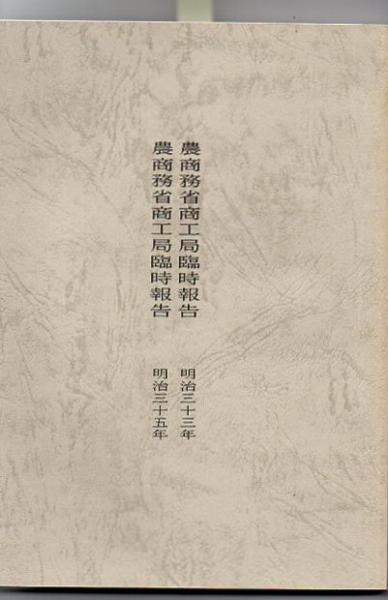 農商務省商工局臨時報告 明治三十三年
農商務省商工局臨時報告 明治三十五年